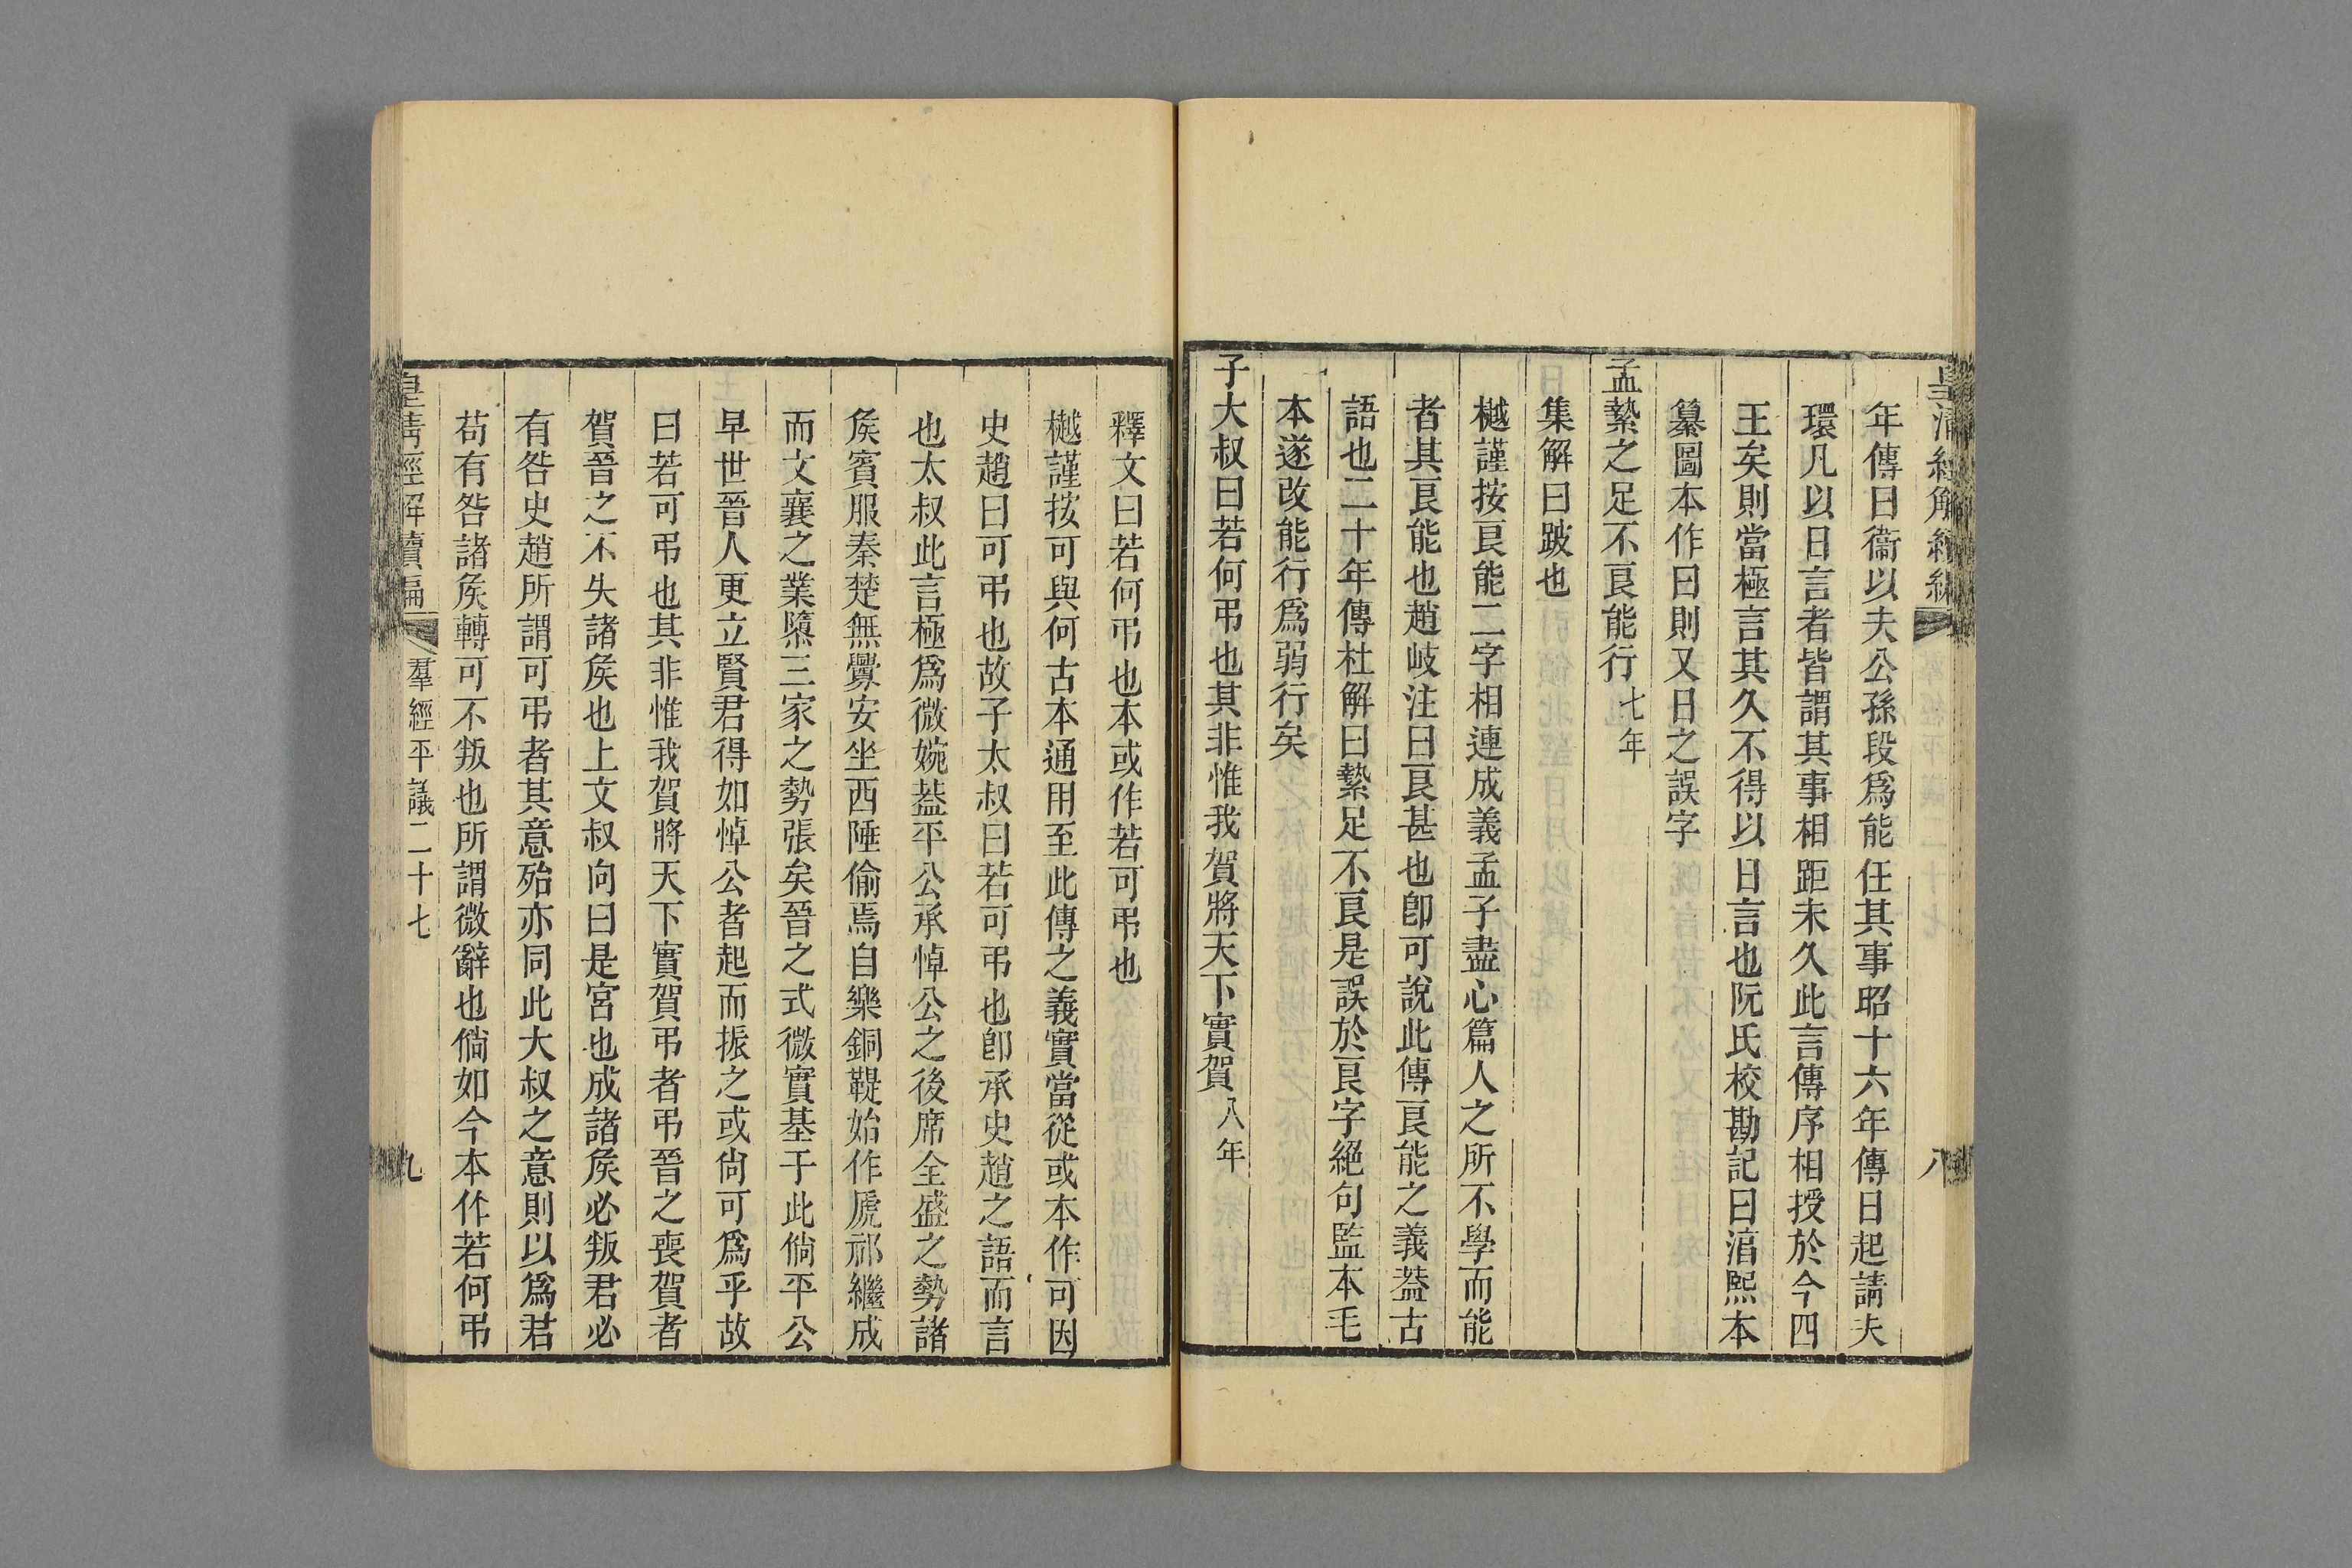 皇清經解續編
八
年傳曰衞以夫公孫段爲能任其事昭十六年傳曰起請夫
環凡以日言者皆謂其事相距未久此言傳序相授於今四
王矣則當極言其久不得以日言也阮氏校勘記曰湻熙本
纂圖本作曰則又日之誤字
孟縶之足不良能行七年
集解曰跛也
樾謹按良能二字相連成義孟子盡心篇人之所不學而能
者其良能也趙岐注曰良甚也卽可說此傳良能之義葢古
語也二十年傳杜解曰縶足不良是誤於良字絕句監本毛
本遂改能行爲弱行矣
子大叔曰若何弔也其非惟我賀將天下實賀八年
釋文曰若何弔也本或作若可弔也
樾謹按可與何古本通用至此傳之義實當從或本作可因
史趙曰可弔也故子太叔曰若可弔也卽承史趙之語而言
也太叔此言極爲微婉葢平公承悼公之後席全盛之勢諸
矦賓服秦楚無釁安坐西陲偷焉自樂銅鞮始作虒祁繼成
而文襄之業隳三家之勢張矣晉之式微實基于此倘平公
早世晉人更立賢君得如悼公者起而振之或尙可爲乎故
曰若可弔也其非惟我賀將天下實賀弔者弔晉之喪賀者
賀晉之不失諸矦也上文叔向曰是宮也成諸矦必叛君必
有咎史趙所謂可弔者其意殆亦同此大叔之意則以爲君
苟有咎諸矦轉可不叛也所謂微辭也倘如今本作若何弔
皇清經解續編
羣經平議二十七
九